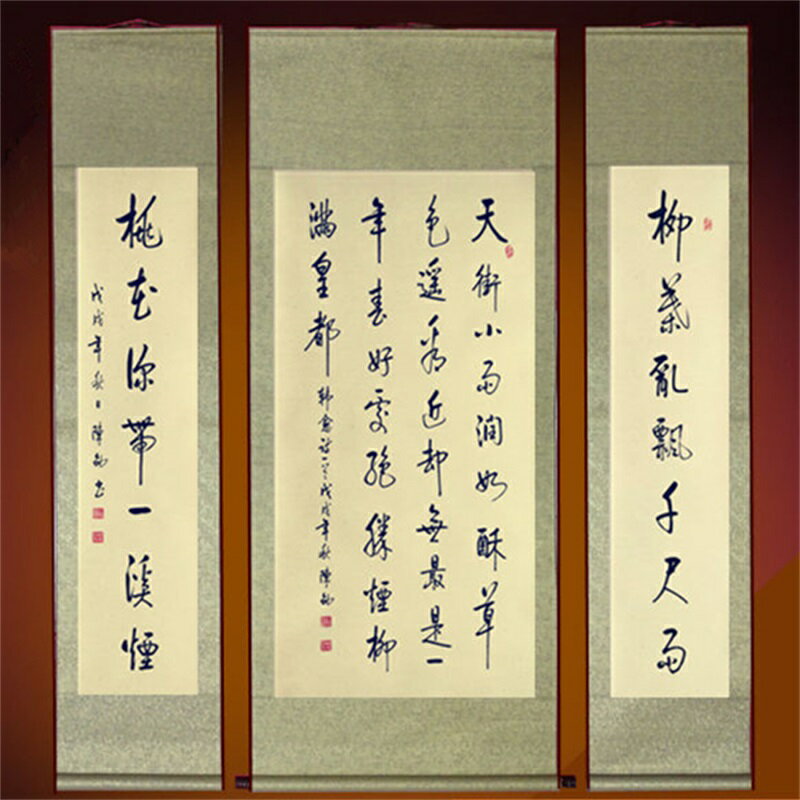 柳葉亂飄千尺雨
天街小雨潤如酥草
色遥看近却無最是一
年春好處絕勝煙柳
滿皇都
韓愈詩一首戊戌年秋陳
桃花深帶一溪煙
戊戌年秋日陳書